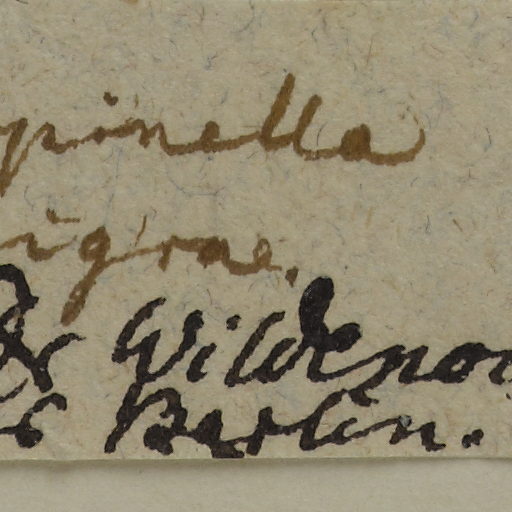 pinella
igrae.
Dr Wildenow
Berlin.